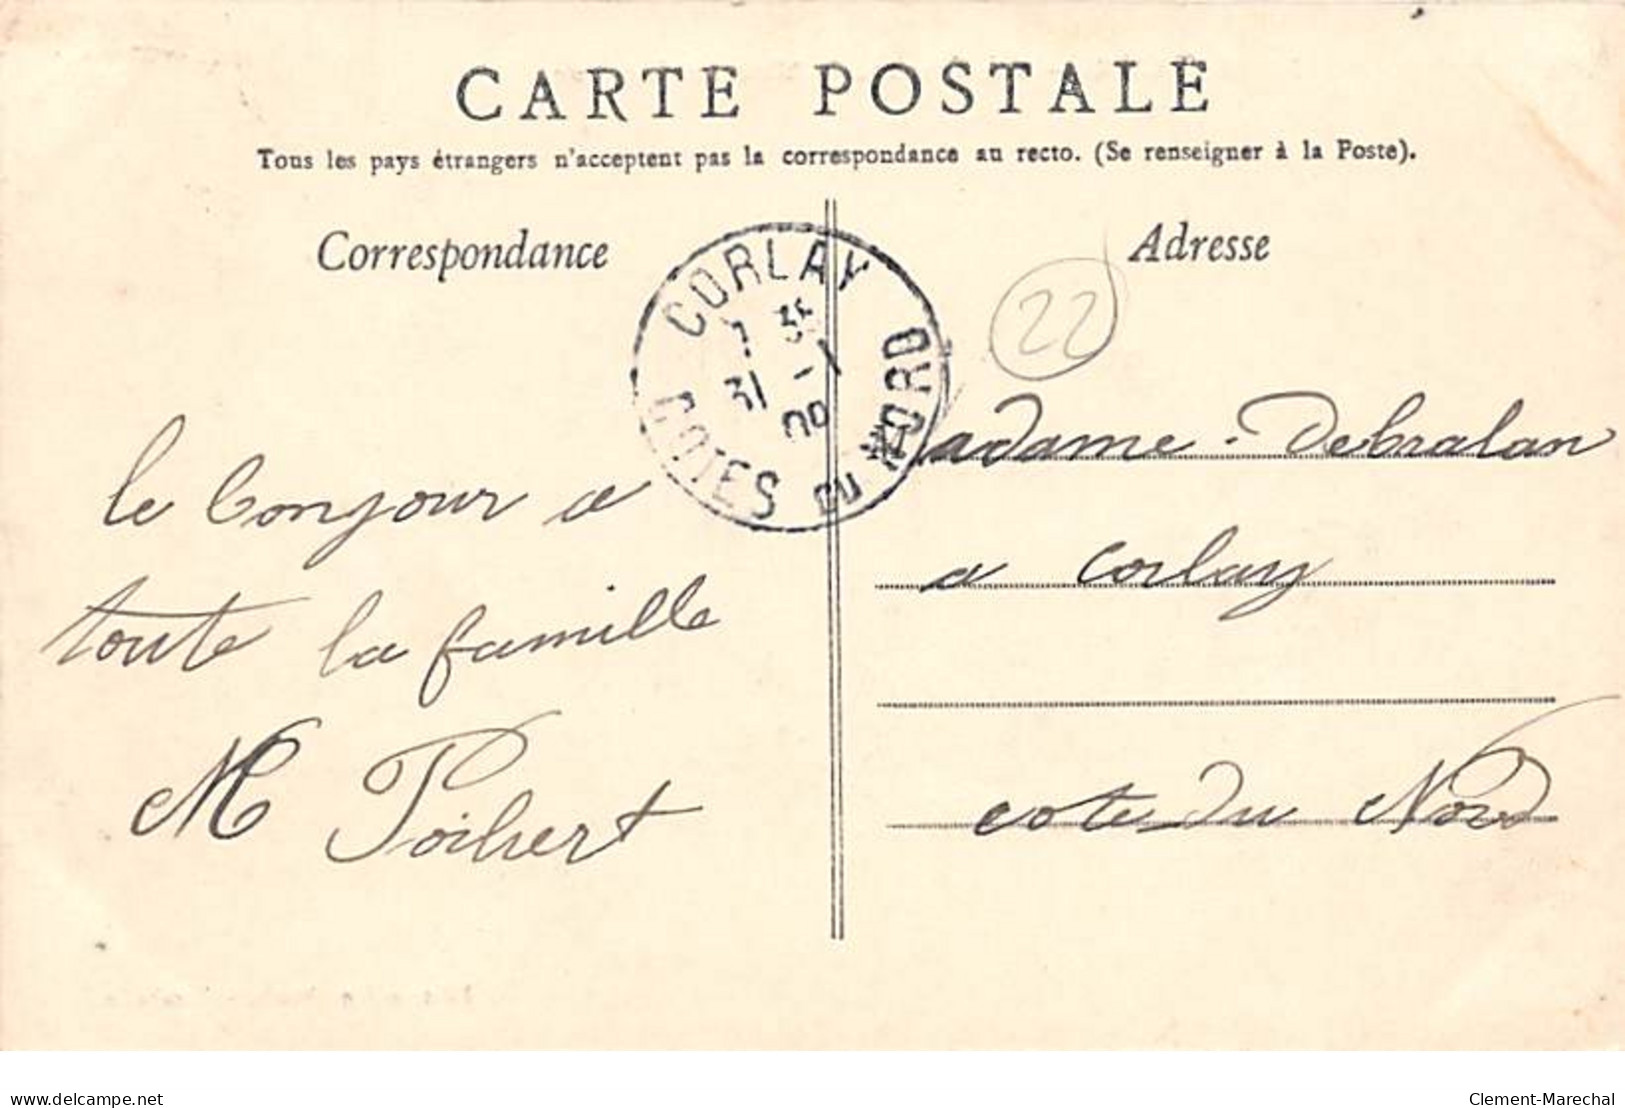 CARTE POSTALE
Tous les pays étrangers n'acceptent pas la correspondance au recto. (Se renseigner à la Poste).
Correspondance
le bonjour a
toute la famille
M Poihert
CORLAY
7 35
31 - 1
09
COTES DU NORD
Adresse
22
Madame. Debralan
a Corlay
cote du Nord
delcampe.net
Clement-Marechal